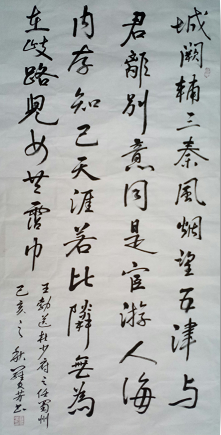 城阙辅三秦風烟望五津与
君離别意同是宦游人海
内存知己天涯若比隣無為
在歧路兒女共霑巾
王勃送杜少府之任蜀州
己亥之秋